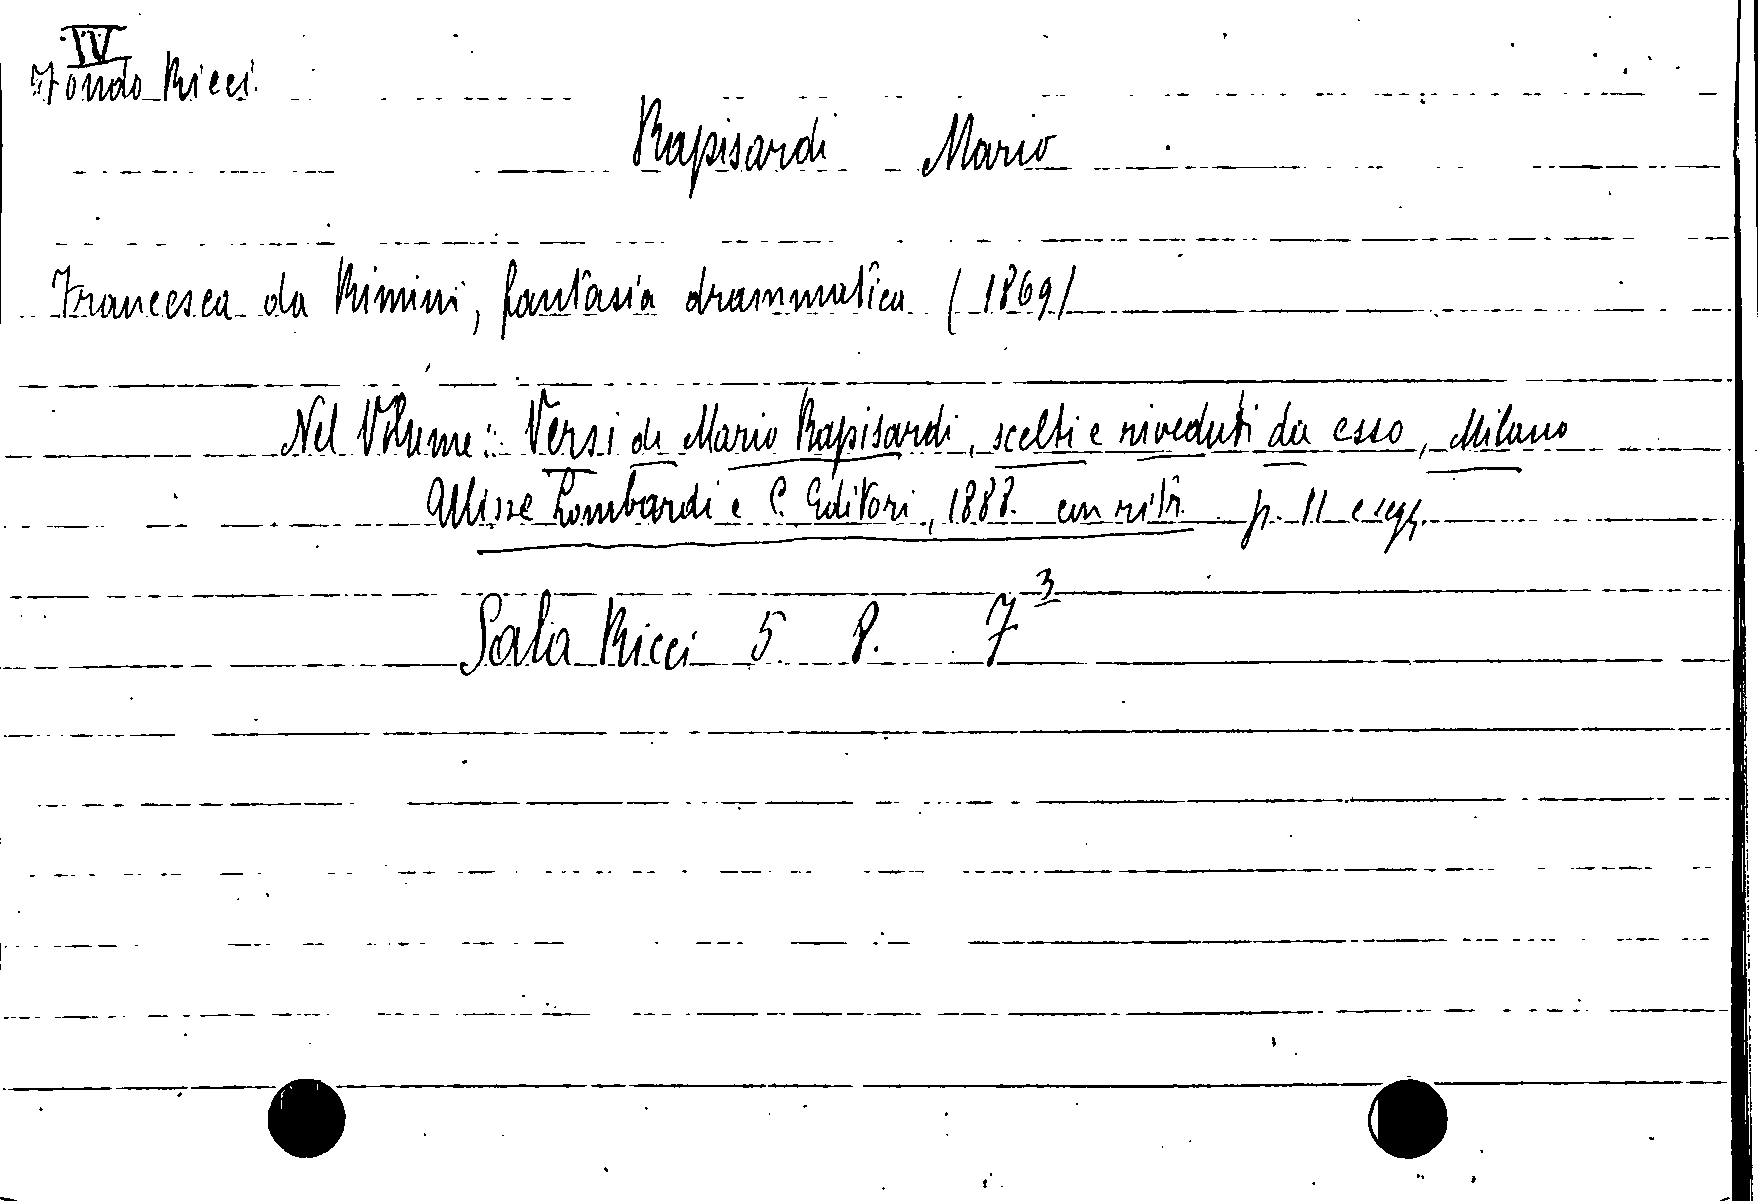 IV
Fondo Ricci.
Rapisardi Mario
Francesca da Rimini, fantasia drammatica (1869)
Nel Volume: Versi di Mario Rapisardi, scelti e riveduti da esso, Milano
Ulisse Lombardi e C. Editori, 1888. con ritr. p. 11 e segg.
Sala Ricci 5 8. 7³